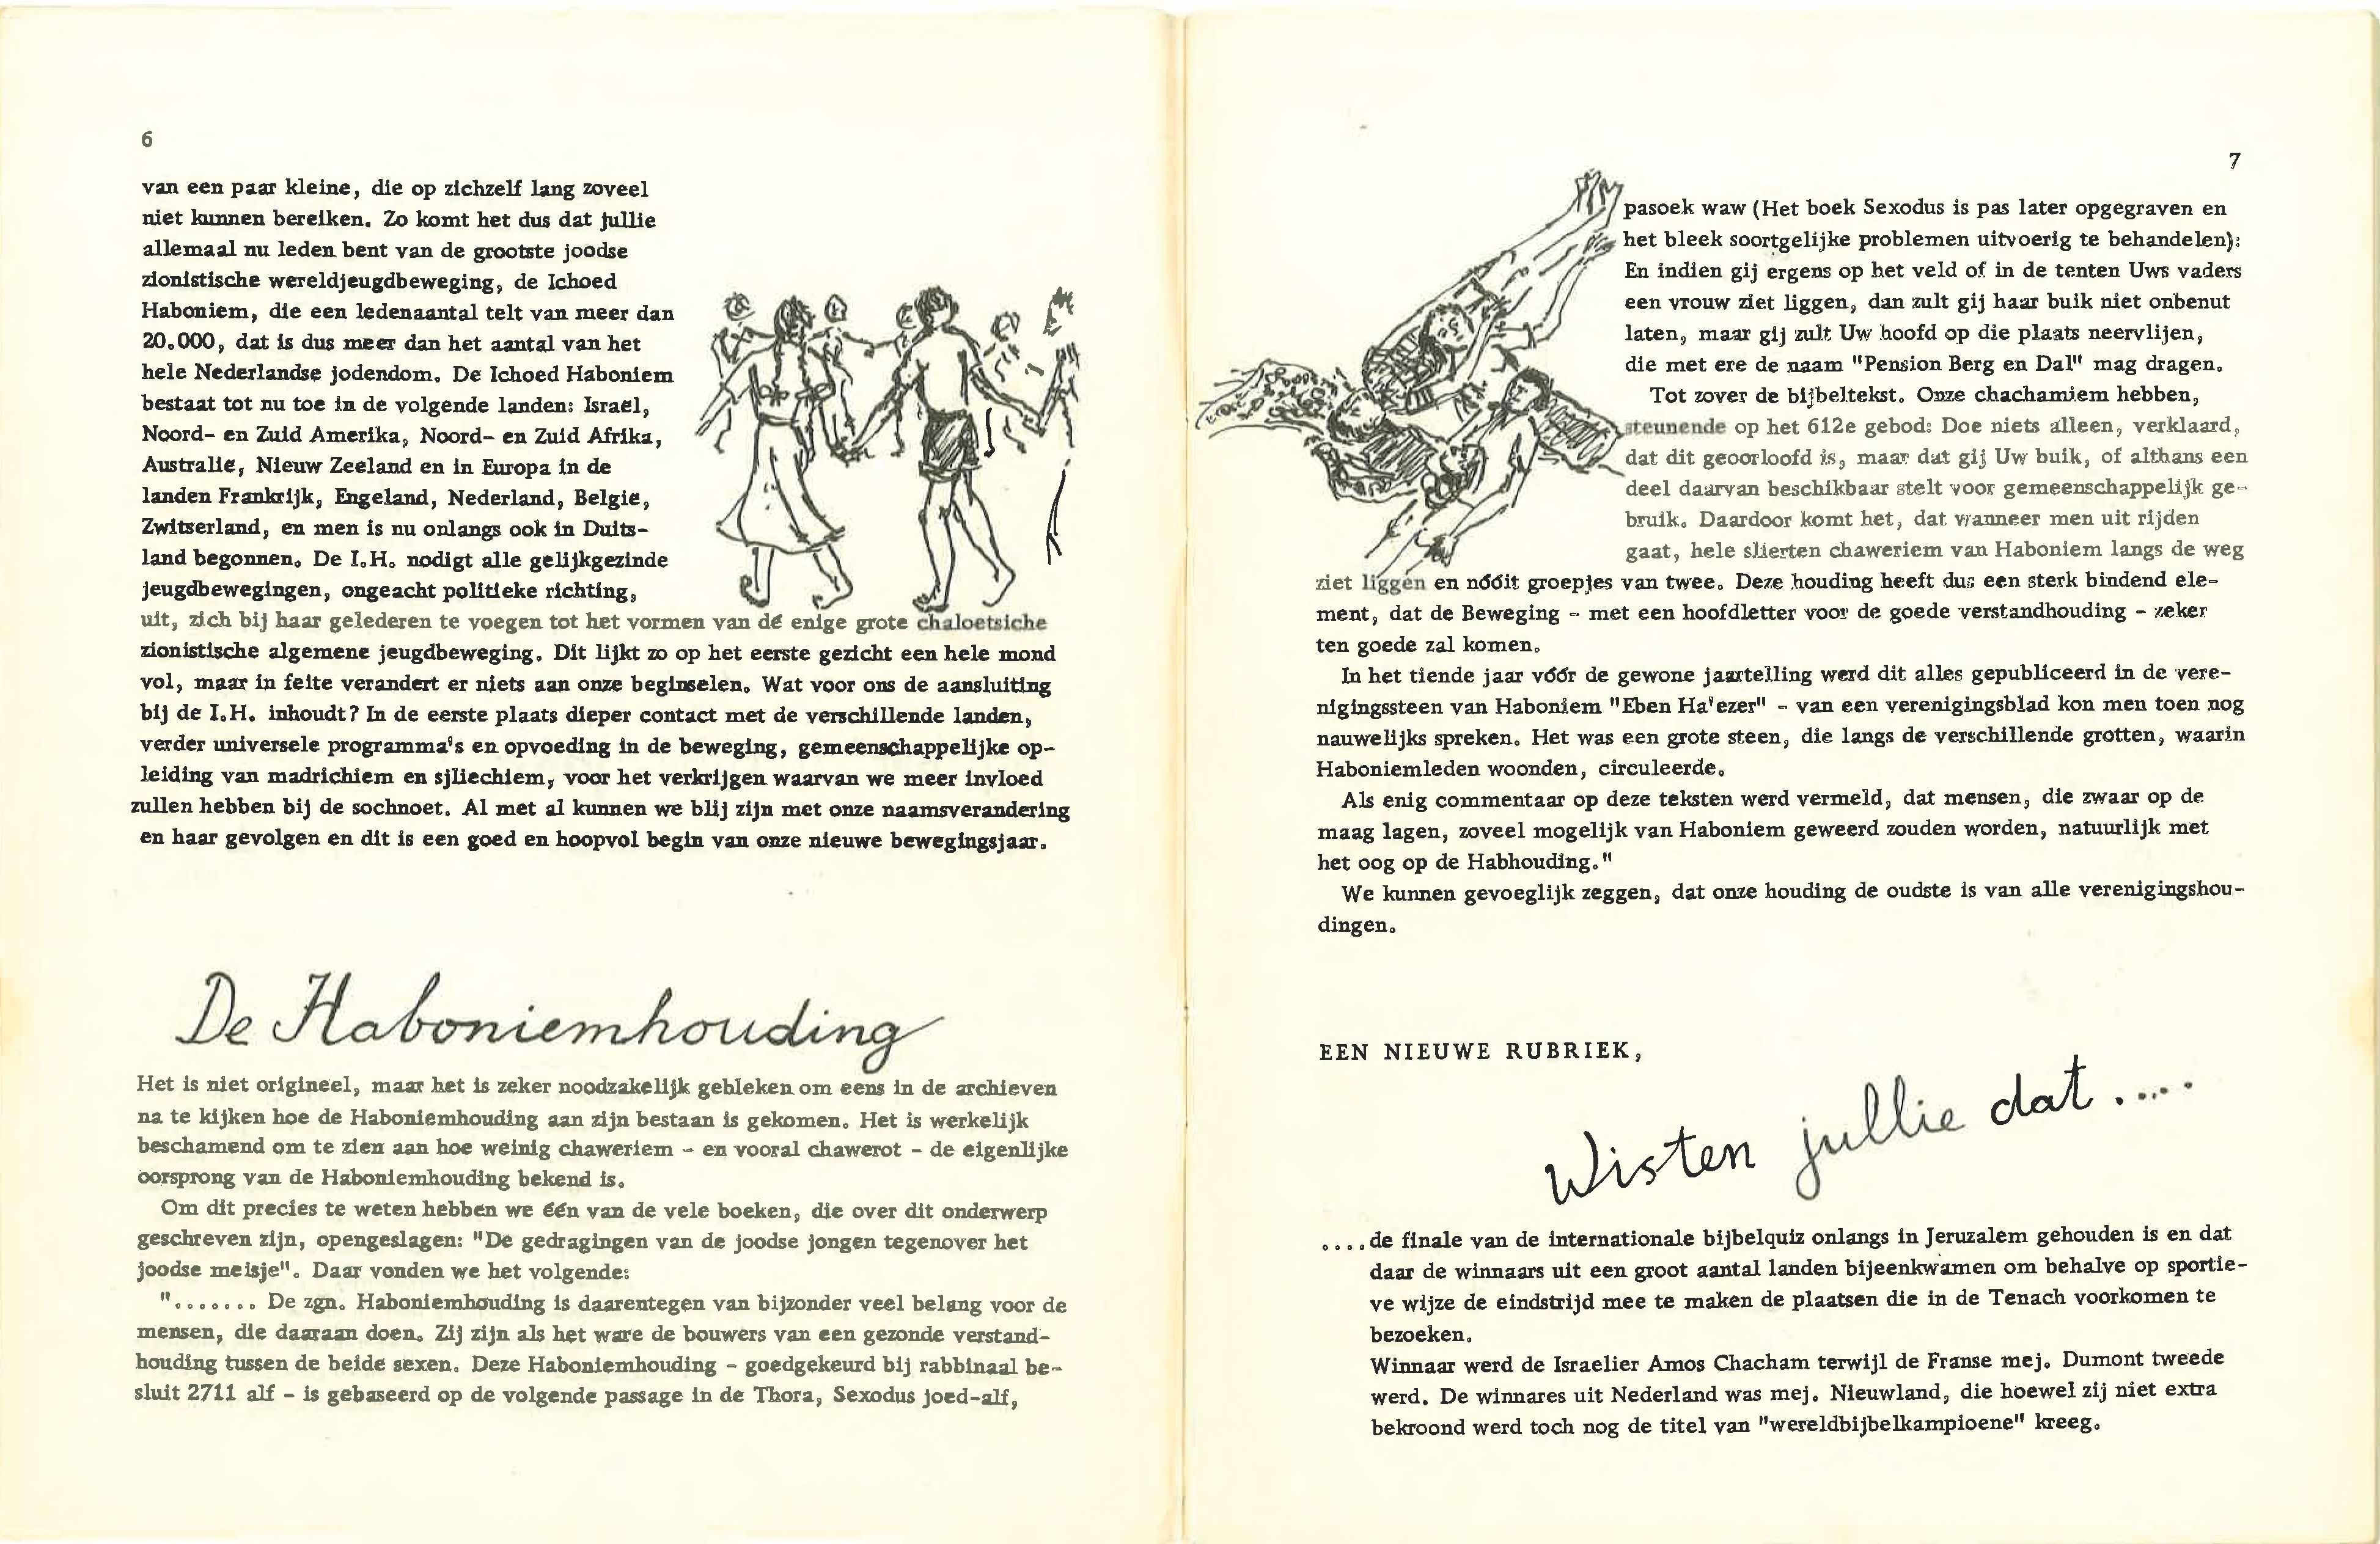 6
van een paar kleine, die op zichzelf lang zoveel
niet kunnen bereiken. Zo komt het dus dat jullie
allemaal nu leden bent van de grootste joodse
zionistische wereldjeugdbeweging, de Ichoed
Haboniem, die een ledenaantal telt van meer dan
20.000, dat is dus meer dan het aantal van het
hele Nederlandse jodendom. De Ichoed Haboniem
bestaat tot nu toe in de volgende landen: Israel,
Noord- en Zuid Amerika, Noord- en Zuid Afrika,
Australie, Nieuw Zeeland en in Europa in de
landen Frankrijk, Engeland, Nederland, Belgie,
Zwitserland, en men is nu onlangs ook in Duits-
land begonnen. De I.H. nodigt alle gelijkgezinde
jeugdbewegingen, ongeacht politieke richting,
uit, zich bij haar gelederen te voegen tot het vormen van dé enige grote chaloetsiche
zionistische algemene jeugdbeweging. Dit lijkt zo op het eerste gezicht een hele mond
vol, maar in feite verandert er niets aan onze beginselen. Wat voor ons de aansluiting
bij de I.H. inhoudt? In de eerste plaats dieper contact met de verschillende landen,
verder universele programma's en opvoeding in de beweging, gemeenschappelijke op-
leiding van madrichiem en sjliechiem, voor het verkrijgen waarvan we meer invloed
zullen hebben bij de sochnoet. Al met al kunnen we blij zijn met onze naamsverandering
en haar gevolgen en dit is een goed en hoopvol begin van onze nieuwe bewegingsjaar.
De Haboniemhouding
Het is niet origineel, maar het is zeker noodzakelijk gebleken om eens in de archieven
na te kijken hoe de Haboniemhouding aan zijn bestaan is gekomen. Het is werkelijk
beschamend om te zien aan hoe weinig chaweriem - en vooral chawerot - de eigenlijke
oorsprong van de Haboniemhouding bekend is.
Om dit precies te weten hebben we één van de vele boeken, die over dit onderwerp
geschreven zijn, opengeslagen: "De gedragingen van de joodse jongen tegenover het
joodse meisje". Daar vonden we het volgende:
"....... De zgn. Haboniemhouding is daarentegen van bijzonder veel belang voor de
mensen, die daaraan doen. Zij zijn als het ware de bouwers van een gezonde verstand-
houding tussen de beide sexen. Deze Haboniemhouding - goedgekeurd bij rabbinaal be-
sluit 2711 alf - is gebaseerd op de volgende passage in de Thora, Sexodus joed-alf,
7
pasoek waw (Het boek Sexodus is pas later opgegraven en
het bleek soortgelijke problemen uitvoerig te behandelen):
En indien gij ergens op het veld of in de tenten Uws vaders
een vrouw ziet liggen, dan zult gij haar buik niet onbenut
laten, maar gij zult Uw hoofd op die plaats neervlijen,
die met ere de naam "Pension Berg en Dal" mag dragen.
Tot zover de bijbeltekst. Onze chachamiem hebben,
steunende op het 612e gebod: Doe niets alleen, verklaard,
dat dit geoorloofd is, maar dat gij Uw buik, of althans een
deel daarvan beschikbaar stelt voor gemeenschappelijk ge-
bruik. Daardoor komt het, dat wanneer men uit rijden
gaat, hele slierten chaweriem van Haboniem langs de weg
ziet liggen en nóóit groepjes van twee. Deze houding heeft dus een sterk bindend ele-
ment, dat de Beweging - met een hoofdletter voor de goede verstandhouding - zeker
ten goede zal komen.
In het tiende jaar vóór de gewone jaartelling werd dit alles gepubliceerd in de vere-
nigingssteen van Haboniem "Eben Ha'ezer" - van een verenigingsblad kon men toen nog
nauwelijks spreken. Het was een grote steen, die langs de verschillende grotten, waarin
Haboniemleden woonden, circuleerde.
Als enig commentaar op deze teksten werd vermeld, dat mensen, die zwaar op de
maag lagen, zoveel mogelijk van Haboniem geweerd zouden worden, natuurlijk met
het oog op de Habhouding."
We kunnen gevoeglijk zeggen, dat onze houding de oudste is van alle verenigingshou-
dingen.
EEN NIEUWE RUBRIEK,
Wisten jullie dat .....
....de finale van de internationale bijbelquiz onlangs in Jeruzalem gehouden is en dat
daar de winnaars uit een groot aantal landen bijeenkwamen om behalve op sportie-
ve wijze de eindstrijd mee te maken de plaatsen die in de Tenach voorkomen te
bezoeken.
Winnaar werd de Israelier Amos Chacham terwijl de Franse mej. Dumont tweede
werd. De winnares uit Nederland was mej. Nieuwland, die hoewel zij niet extra
bekroond werd toch nog de titel van "wereldbijbelkampioene" kreeg.